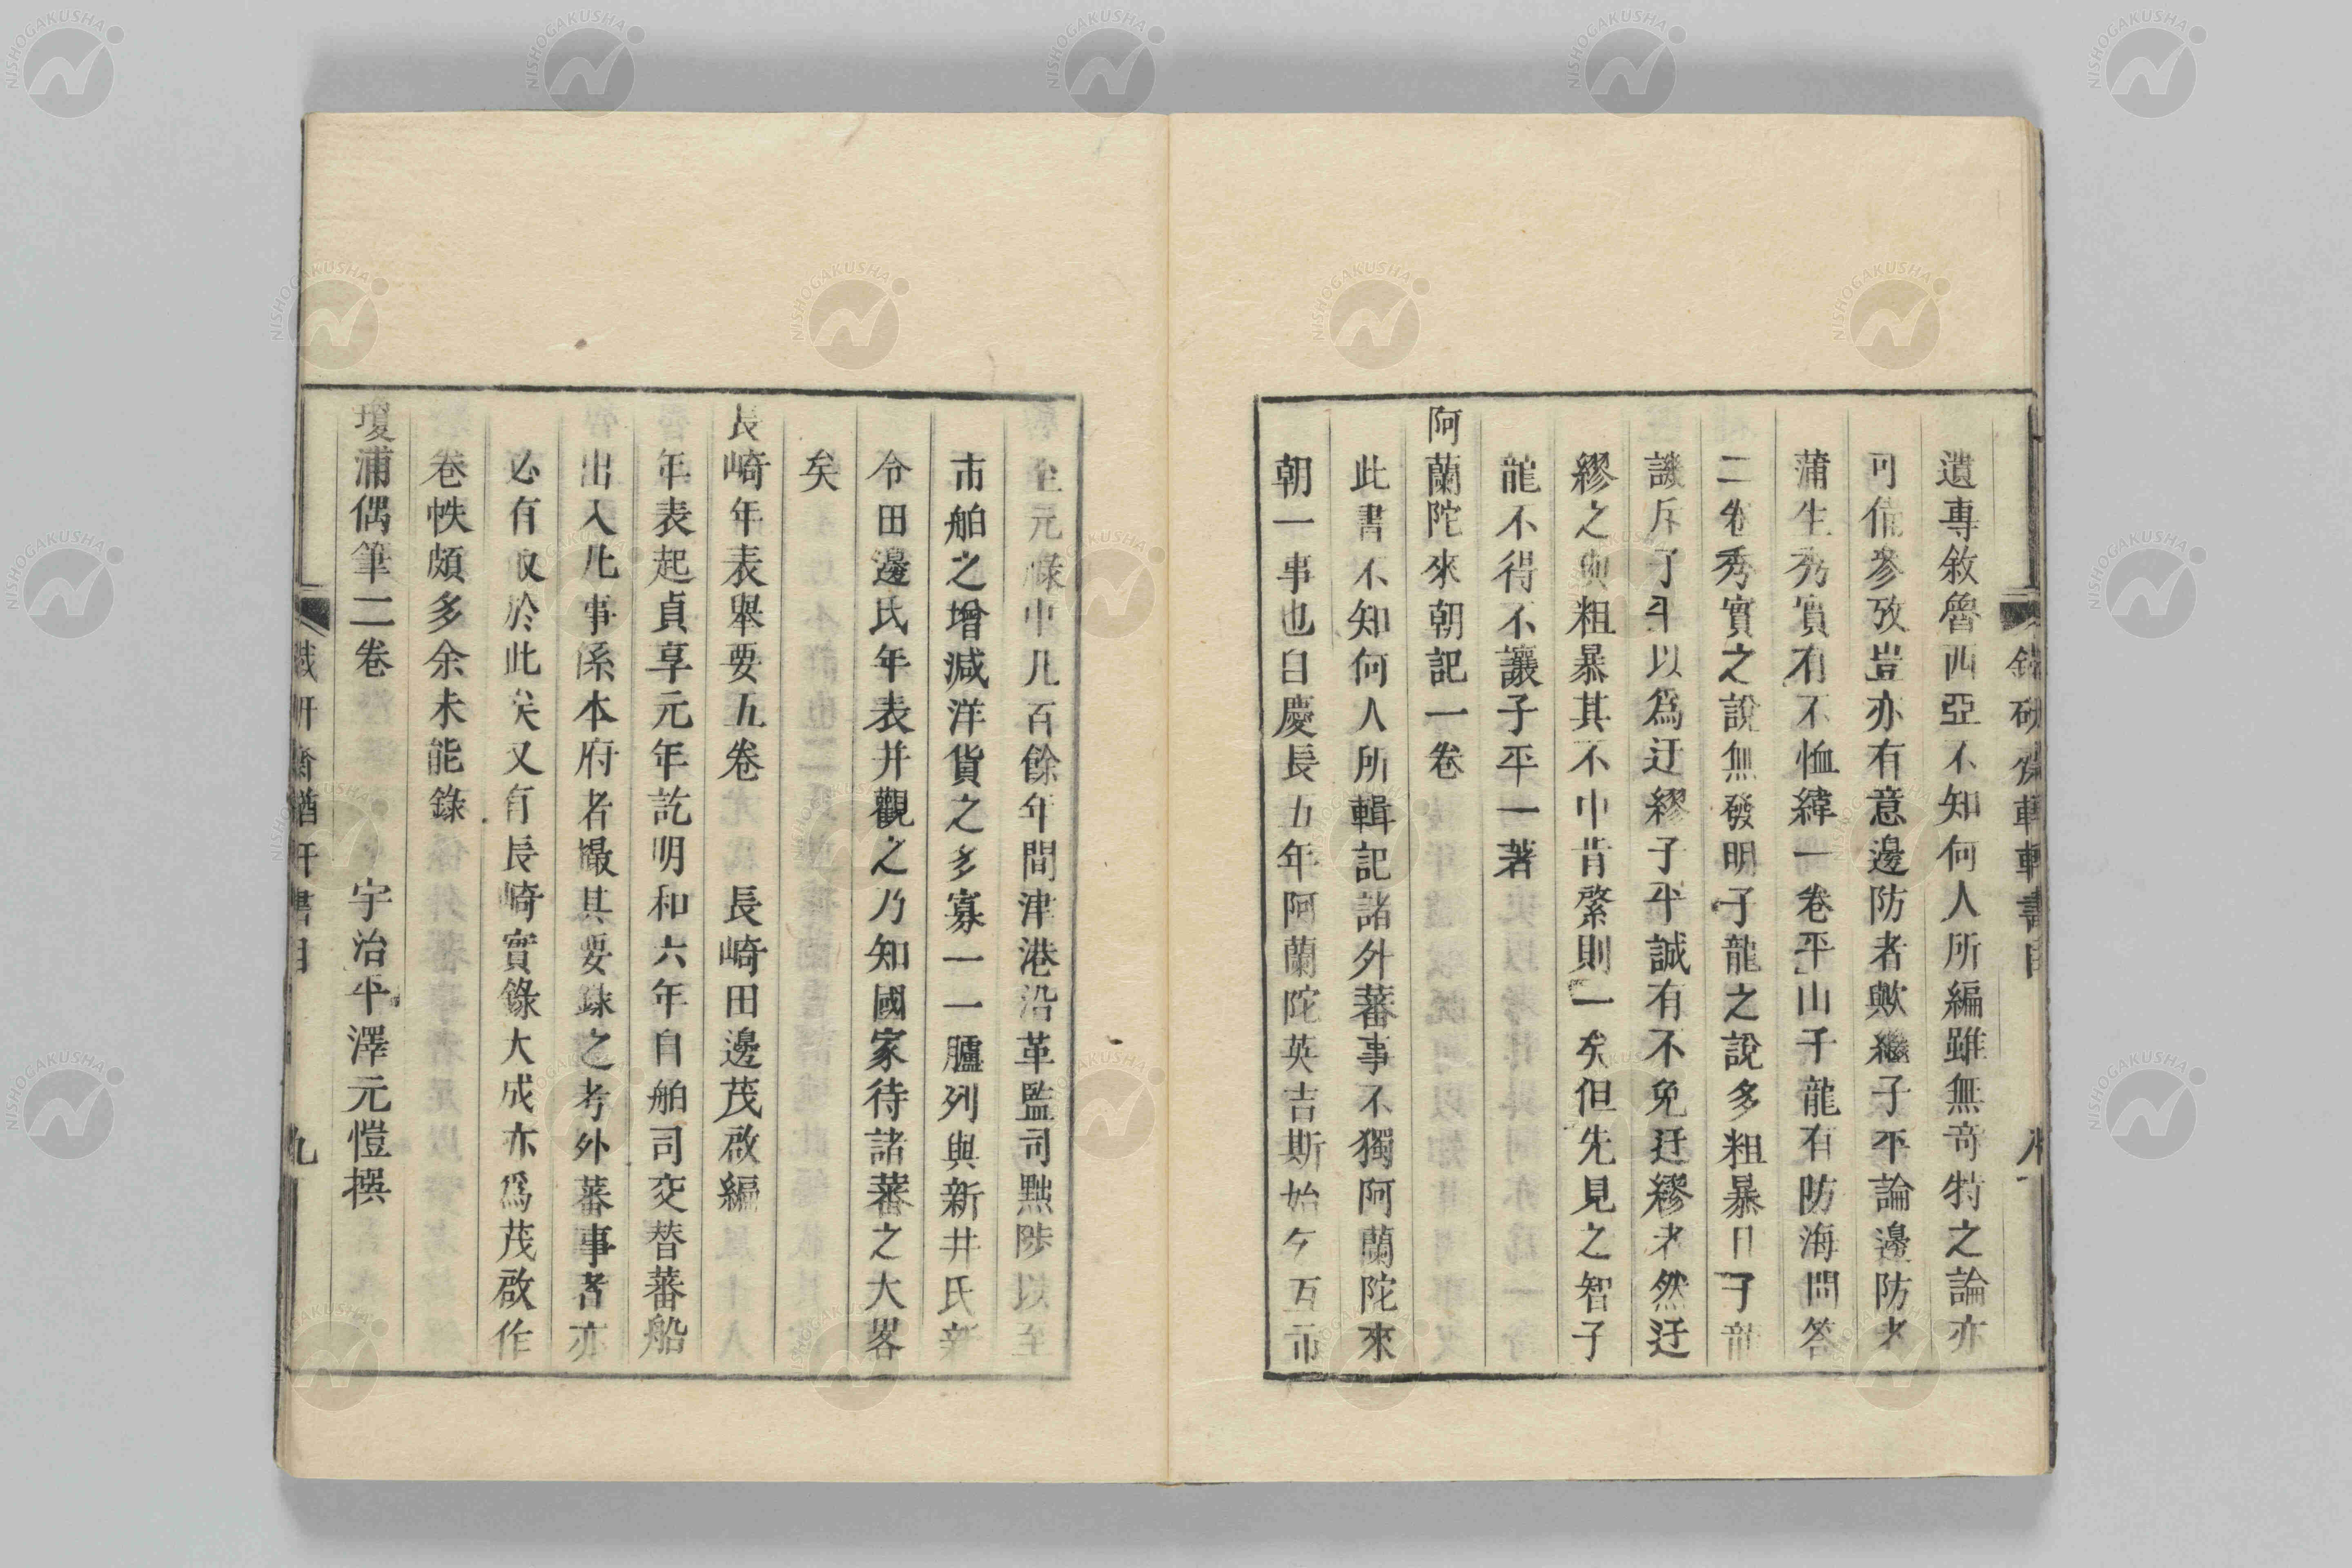 遺專敘魯西亞不知何人所編雖無奇特之論亦
可備參攷豈亦有意邊防者歟繼子平論邊防者
蒲生秀實有不恤緯一卷平山子龍有防海問答
二卷秀實之說無發明子龍之說多粗暴且子龍
譏斥子平以爲迂繆子平誠有不免迂繆者然迂
繆之與粗暴其不中肯綮則一矣但先見之智子
龍不得不讓子平一著
阿蘭陀來朝記一卷
此書不知何人所輯記諸外蕃事不獨阿蘭陀來
朝一事也自慶長五年阿蘭陀英吉斯始乞互市
至元祿中凡百餘年間津港沿革監司黜陟以至
市舶之增減洋貨之多寡一一臚列與新井氏新
令田邊氏年表幷觀之乃知國家待諸蕃之大畧
矣
長崎年表舉要五卷 長崎田邊茂啟編
年表起貞享元年訖明和六年自舶司交替蕃船
出入凡事係本府者撮其要錄之考外蕃事者亦
必有取於此矣又有長崎實錄大成亦爲茂啟作
卷帙頗多余未能錄
瓊浦偶筆二卷 宇治平澤元愷撰
九
NISHOGAKUSHA